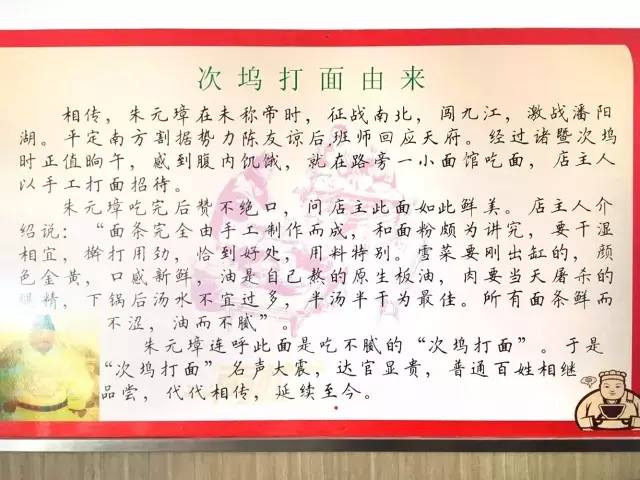 次坞打面由来
相传，朱元璋在未称帝时，征战南北，闯九江，激战潘阳
湖。平定南方割据势力陈友谅后，班师回应天府。经过诸暨次坞
时正值晌午，感到腹内饥饿，就在路旁一小面馆吃面，店主人
以手工打面招待。
朱元璋吃完后赞不绝口，问店主此面如此鲜美。店主人介
绍说：“面条完全由手工制作而成，和面粉颇为讲究，要干湿
相宜，擀打用劲，恰到好处，用料特别。雪菜要刚出缸的，颜
色金黄，口感新鲜，油是自己熬的原生板油，肉要当天屠杀的
腿精，下锅后汤水不宜过多，半汤半干为最佳。所有面条鲜而
不涩，油而不腻”。
朱元璋连呼此面是吃不腻的“次坞打面”。于是
“次坞打面”名声大震，达官显贵，普通百姓相继
品尝，代代相传，延续至今。